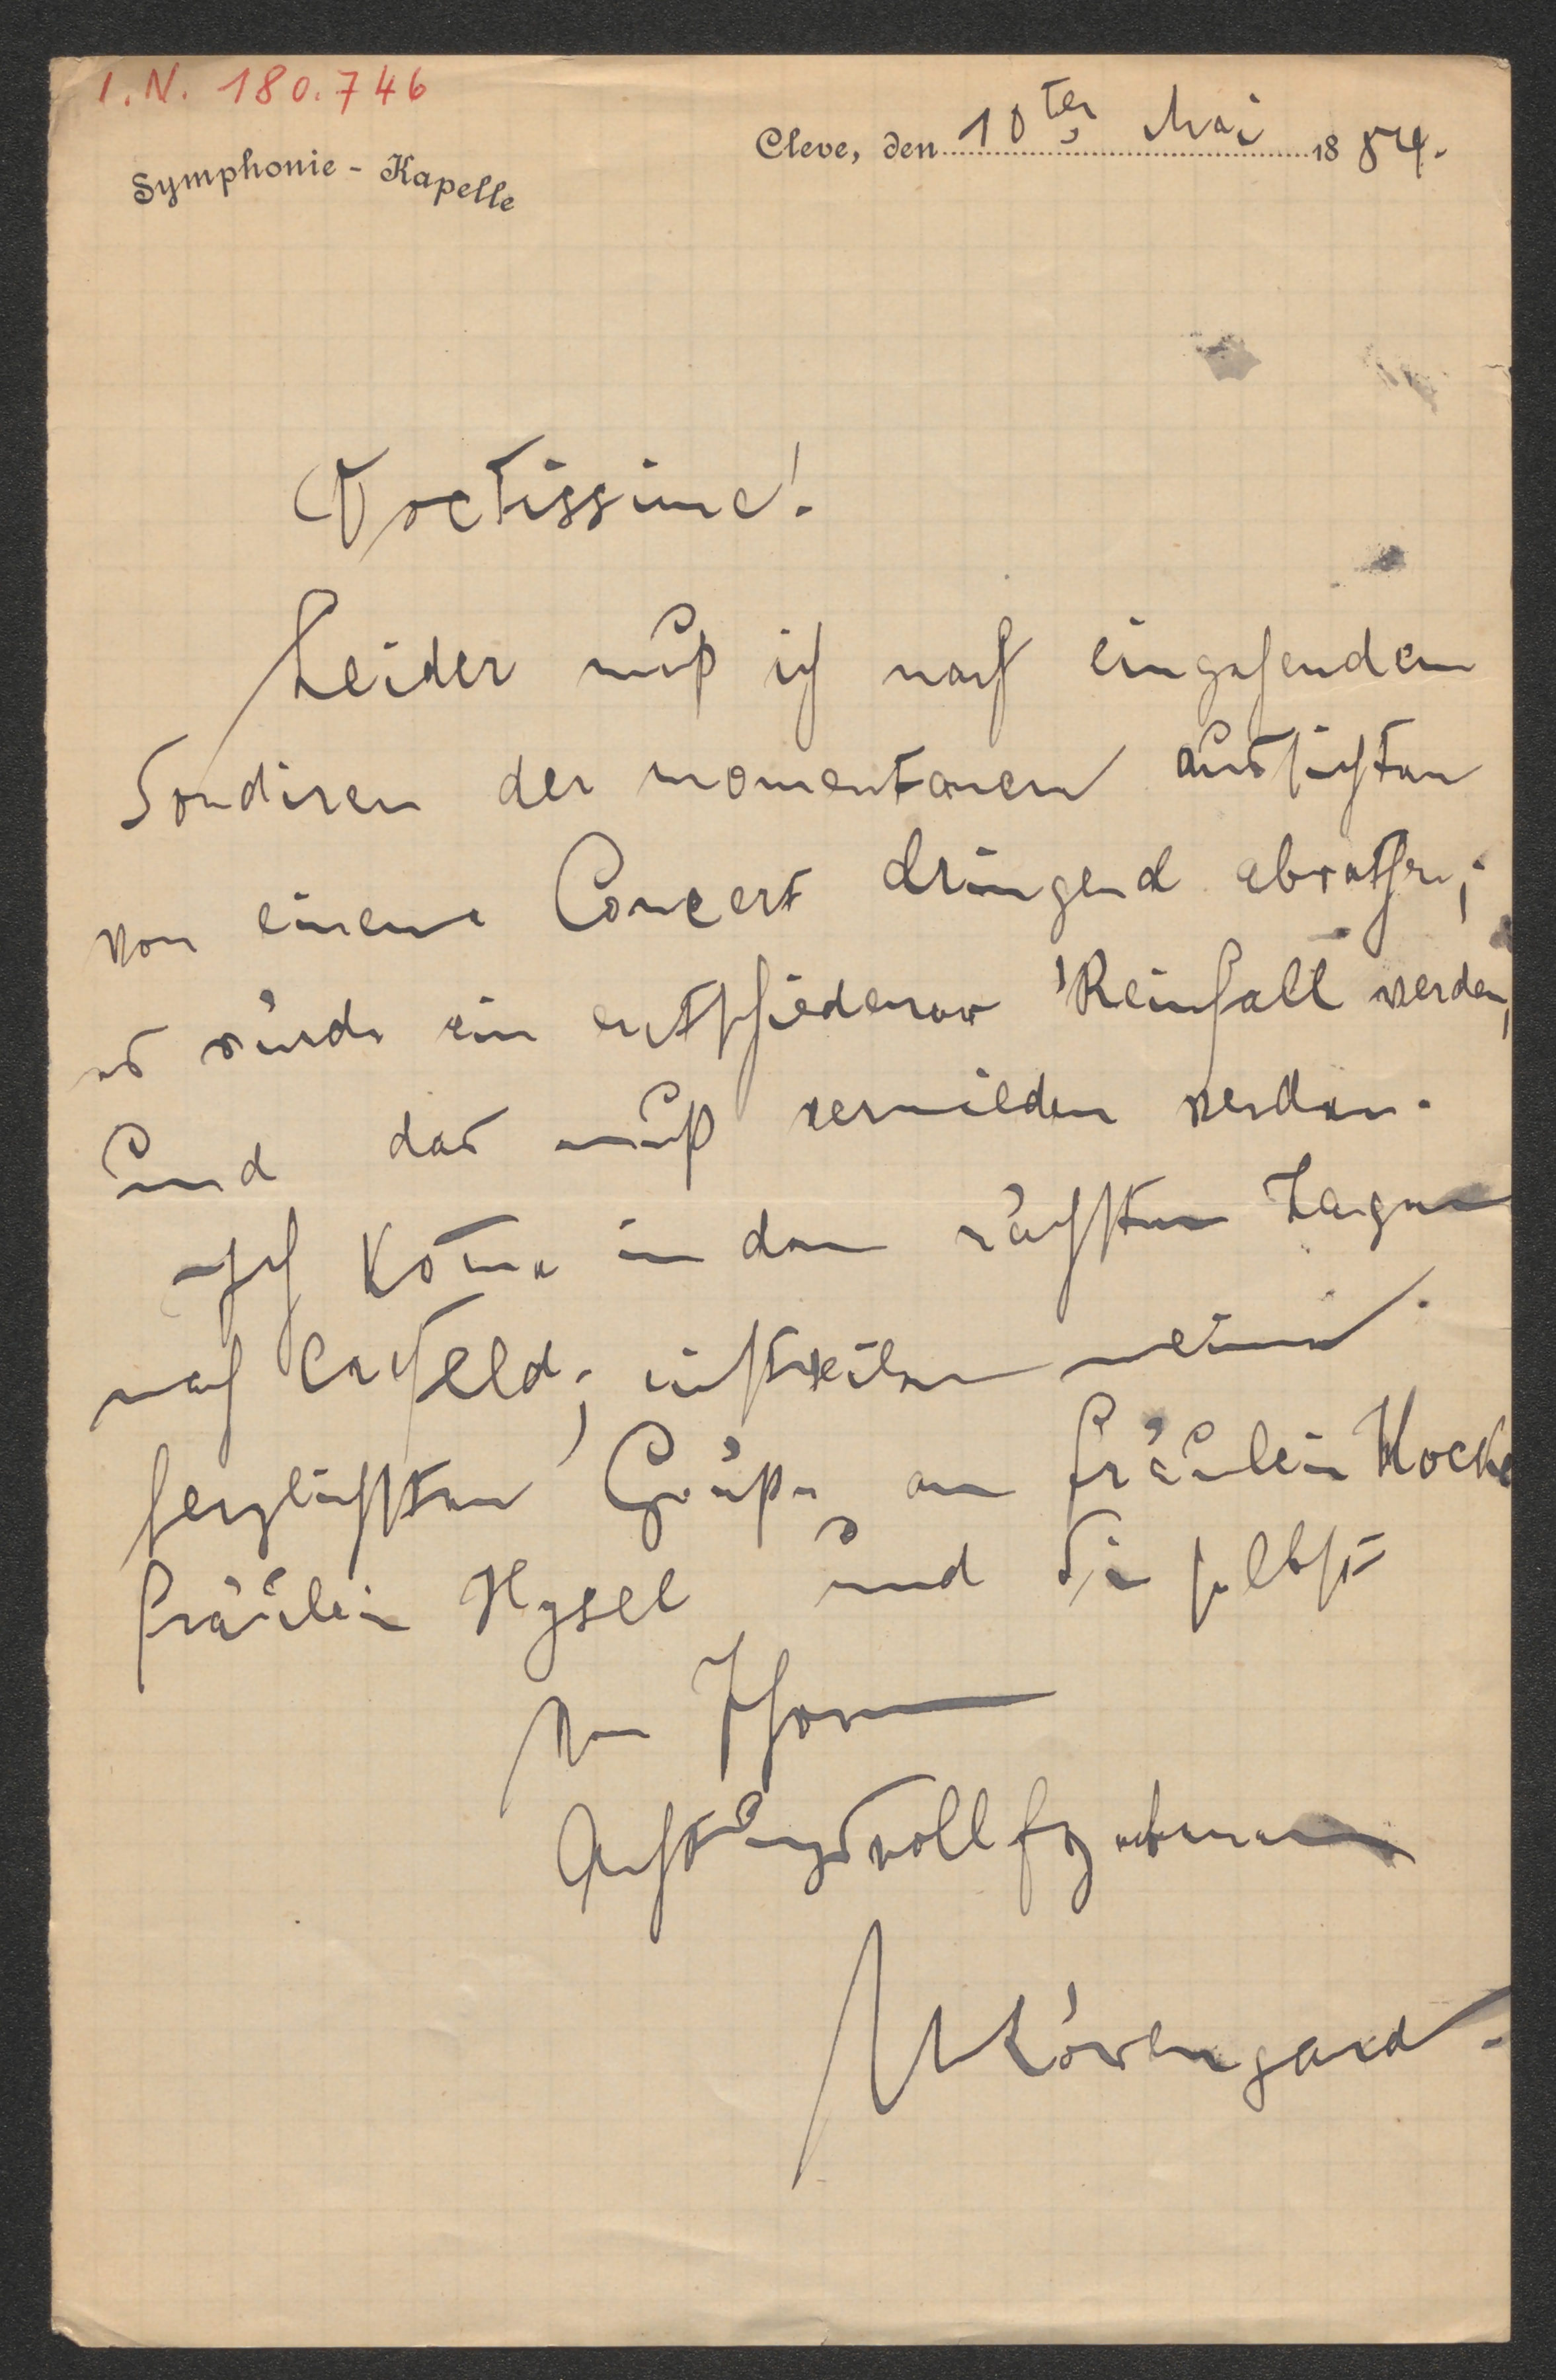 I.N. 180.746
Cleve, den 10ten Mai 1884.
Symphonie-Kapelle
Doctissime!
Leider muß ich nach eingehendem
Sondiren der momentanen Aussichten
von einem Concert dringend abrathen;
es würde ein entschiedener Reinfall werden,
und das muß vermieden werden.
Ich kom̄e in den nächsten Tagen
nach Crefeld; einstweilen meine
herzlichsten Grüße an Fräulein
Fräulein Hysel und Sie selbst
von Ihrem
Achtungsvollst ergebenen
MLöwengard.